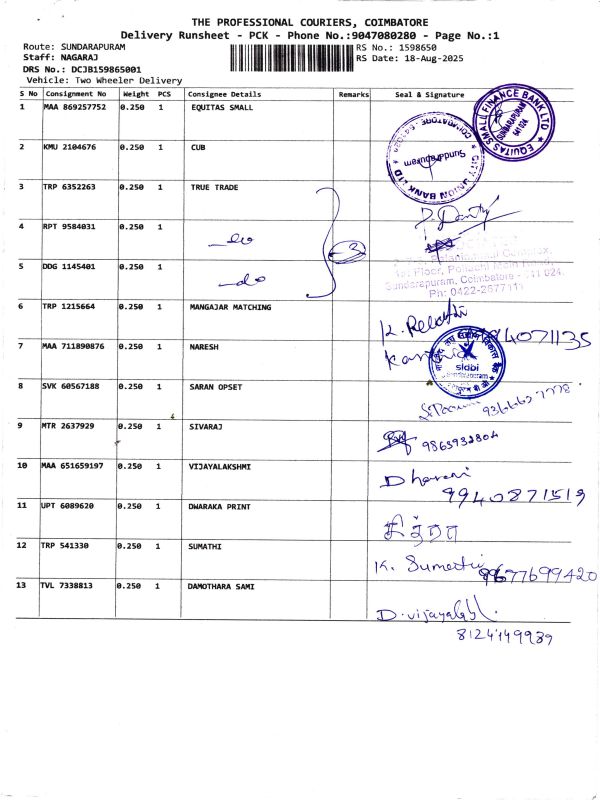 THE PROFESSIONAL COURIERS, COIMBATORE
Delivery Runsheet - PCK - Phone No.:9047080280 - Page No.:1
Route: SUNDARAPURAM
RS No.: 1598650
Staff: NAGARAJ
RS Date: 18-Aug-2025
DRS No.: DCJB159865001
Vehicle: Two Wheeler Delivery
S No Consignment No Weight PCS Consignee Details Remarks Seal & Signature
1 MAA 869257752 0.250 1 EQUITAS SMALL
EQUITAS SMALL FINANCE BANK LTD
SUNDARAPURAM
641024
2 KMU 2104676 0.250 1 CUB
CITY UNION BANK LTD
Sundarapuram
COIMBATORE
3 TRP 6352263 0.250 1 TRUE TRADE
4 RPT 9584031 0.250 1
do
3
5 DDG 1145401 0.250 1
do
Floor, Pollachi Main Road,
Sundarapuram, Coimbatore - 641 024.
Ph: 0422-2677111
6 TRP 1215664 0.250 1 MANGAJAR MATCHING
7 MAA 711890876 0.250 1 NARESH
sidbi
8 SVK 60567188 0.250 1 SARAN OPSET
9 MTR 2637929 0.250 1 SIVARAJ
9863932804
10 MAA 651659197 0.250 1 VIJAYALAKSHMI
Dharani
9940871519
11 UPT 6089620 0.250 1 DWARAKA PRINT
12 TRP 541330 0.250 1 SUMATHI
K. Sumathi
9677699420
13 TVL 7338813 0.250 1 DAMOTHARA SAMI
D. vijayalakshmi
8124149939